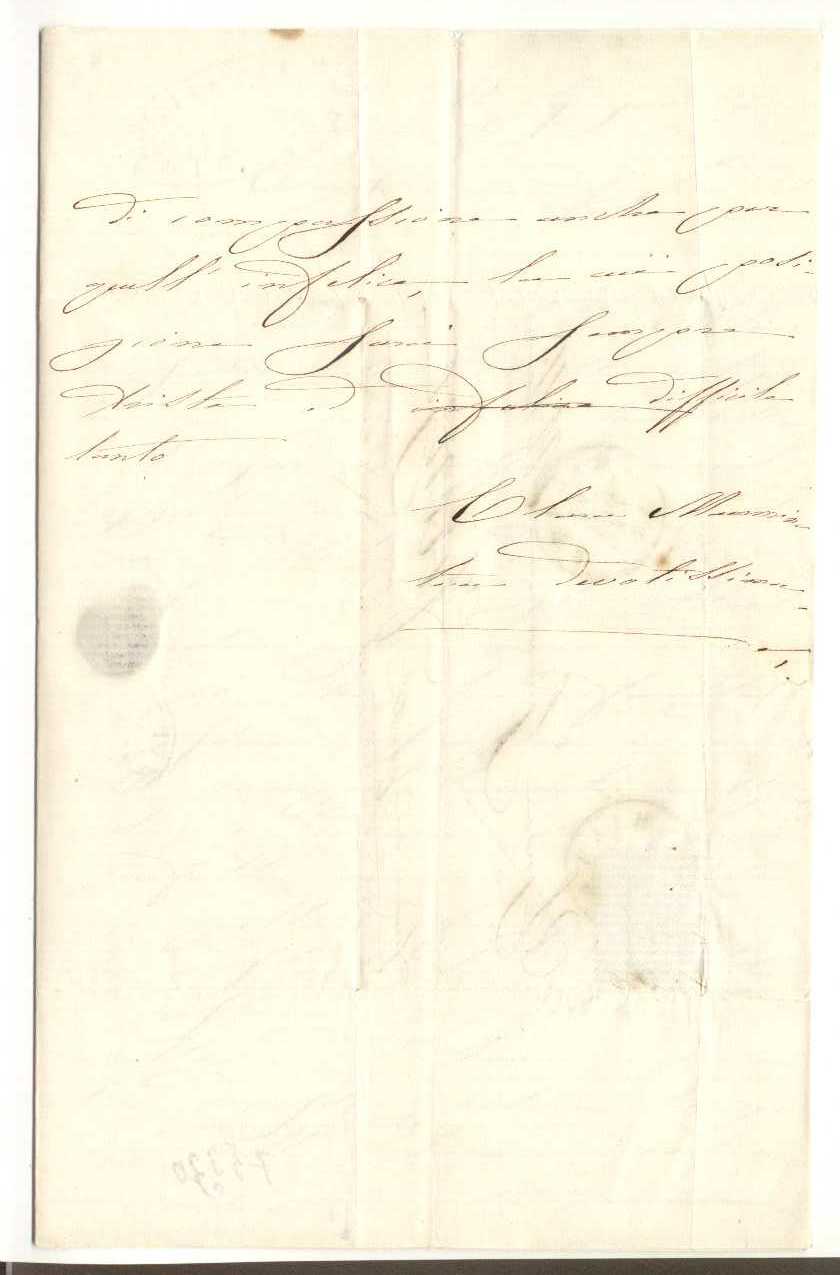 di compassione anche per
quell' infelice, la cui posi-
zione sarà sempre
trista e infelice difficile
tanto
Clara Maffei
tua devotissima